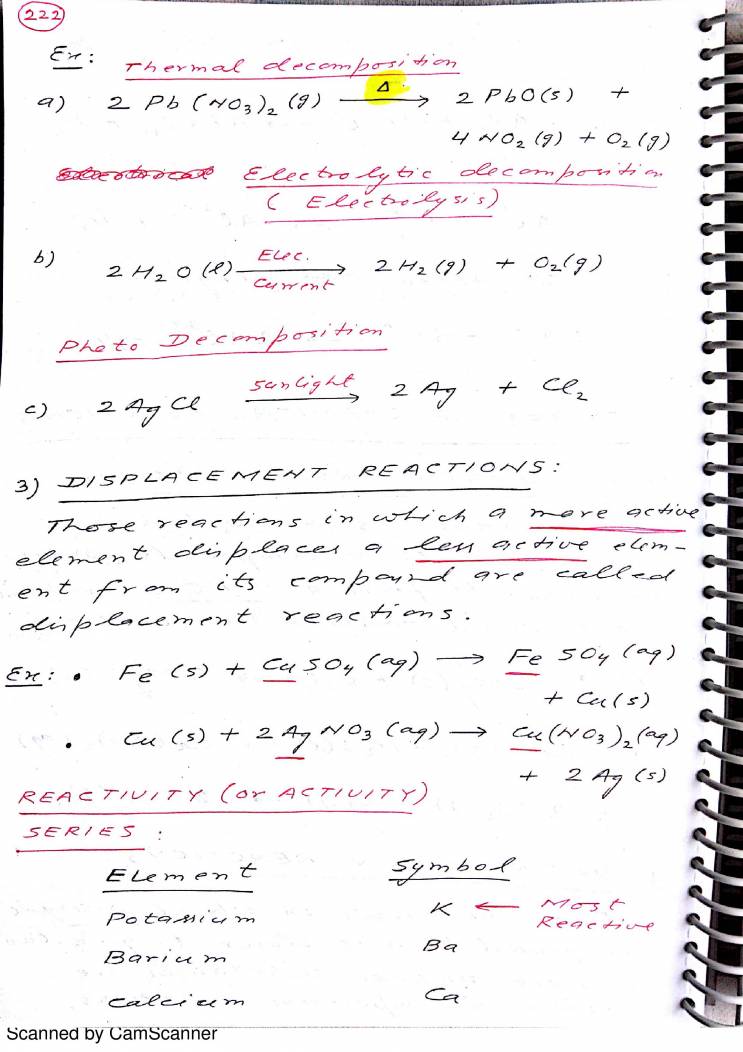 222
Ex: Thermal decomposition
a) 2 Pb (NO₃)₂ (g) —Δ→ 2 PbO(s) +
4 NO₂ (g) + O₂ (g)
Electrolytic decomposition
( Electrolysis)
b) 2 H₂ O (l) —Elec. Current→ 2 H₂ (g) + O₂(g)
Photo Decomposition
c) 2 Ag Cl —sunlight→ 2 Ag + Cl₂
3) DISPLACEMENT REACTIONS:
Those reactions in which a more active
element displaces a less active elem-
ent from its compound are called
displacement reactions.
Ex: • Fe (s) + Cu SO₄ (aq) → Fe SO₄ (aq)
+ Cu (s)
• Cu (s) + 2 Ag NO₃ (aq) → Cu(NO₃)₂ (aq)
+ 2 Ag (s)
REACTIVITY (or ACTIVITY)
SERIES :
Element Symbol
Potassium K ← Most Reactive
Barium Ba
Calcium Ca
Scanned by CamScanner